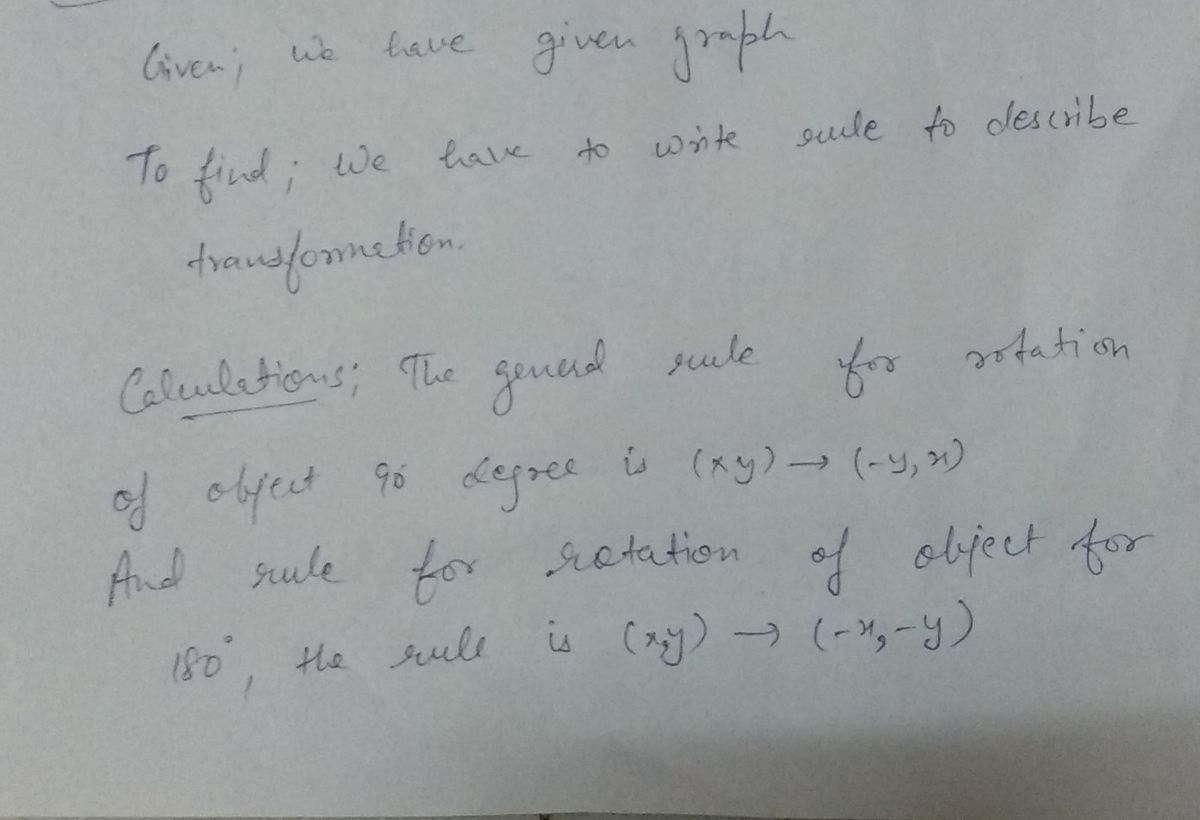 Given; we have given graph
To find; We have to write rule to describe
transformation.
Calculations; The general rule for rotation
of object 90 degree is (x y) → (-y, x)
And rule for rotation of object for
180°, the rule is (x,y) → (-x, -y)